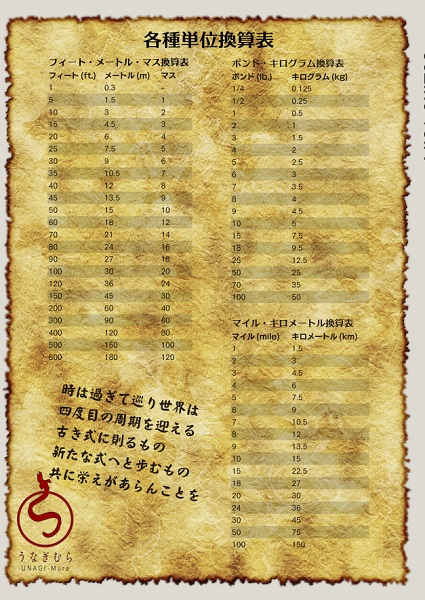 各種単位換算表
フィート・メートル・マス換算表
フィート (ft.) メートル (m) マス
1 0.3 -
5 1.5 1
10 3 2
15 4.5 3
20 6 4
25 7.5 5
30 9 6
35 10.5 7
40 12 8
45 13.5 9
50 15 10
60 18 12
70 21 14
80 24 16
90 27 18
100 30 20
120 36 24
150 45 30
200 60 40
300 90 60
400 120 80
500 150 100
600 180 120
ポンド・キログラム換算表
ポンド (lb.) キログラム (kg)
1/4 0.125
1/2 0.25
1 0.5
2 1
3 1.5
4 2
5 2.5
6 3
7 3.5
8 4
9 4.5
10 5
15 7.5
18 9.5
25 12.5
50 25
70 35
100 50
マイル・キロメートル換算表
マイル (mile) キロメートル (km)
1 1.5
2 3
3 4.5
4 6
5 7.5
6 9
7 10.5
8 12
9 13.5
10 15
15 22.5
18 27
20 30
24 36
30 45
50 75
100 150
時は過ぎて巡り世界は
四度目の周期を迎える
古き式に則るもの
新たな式へと歩むもの
共に栄えがあらんことを
う
うなぎむら
UNAGI-Mura